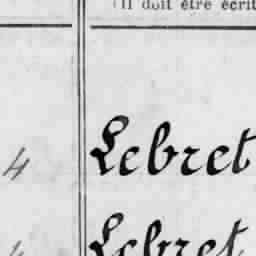 (Il doit être écrit
4 Lebret
4 Lebret